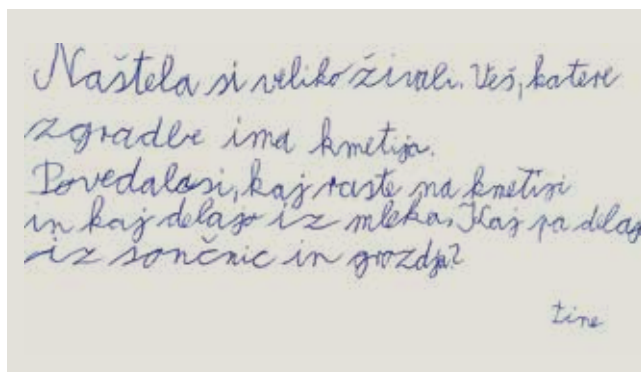 Naštela si veliko živali. Veš, katere
zgradbe ima kmetija.
Povedala si, kaj raste na kmetiji
in kaj delajo iz mleka. Kaj pa delajo
iz sončnic in grozdja?
tine